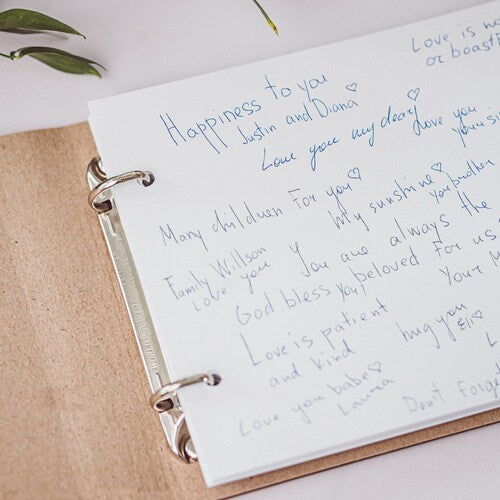 Love is no
or boastf
Happiness to you
Justin and Diana
Love you my dear
Love you
your si
Many children For you
My sunshine
your brother
Family Willson
Love you
You are always the
beloved For us
God bless you!
Your
Love is patient
and kind
hug you
Elii
Love you babe
Laura
Don't Forget
L